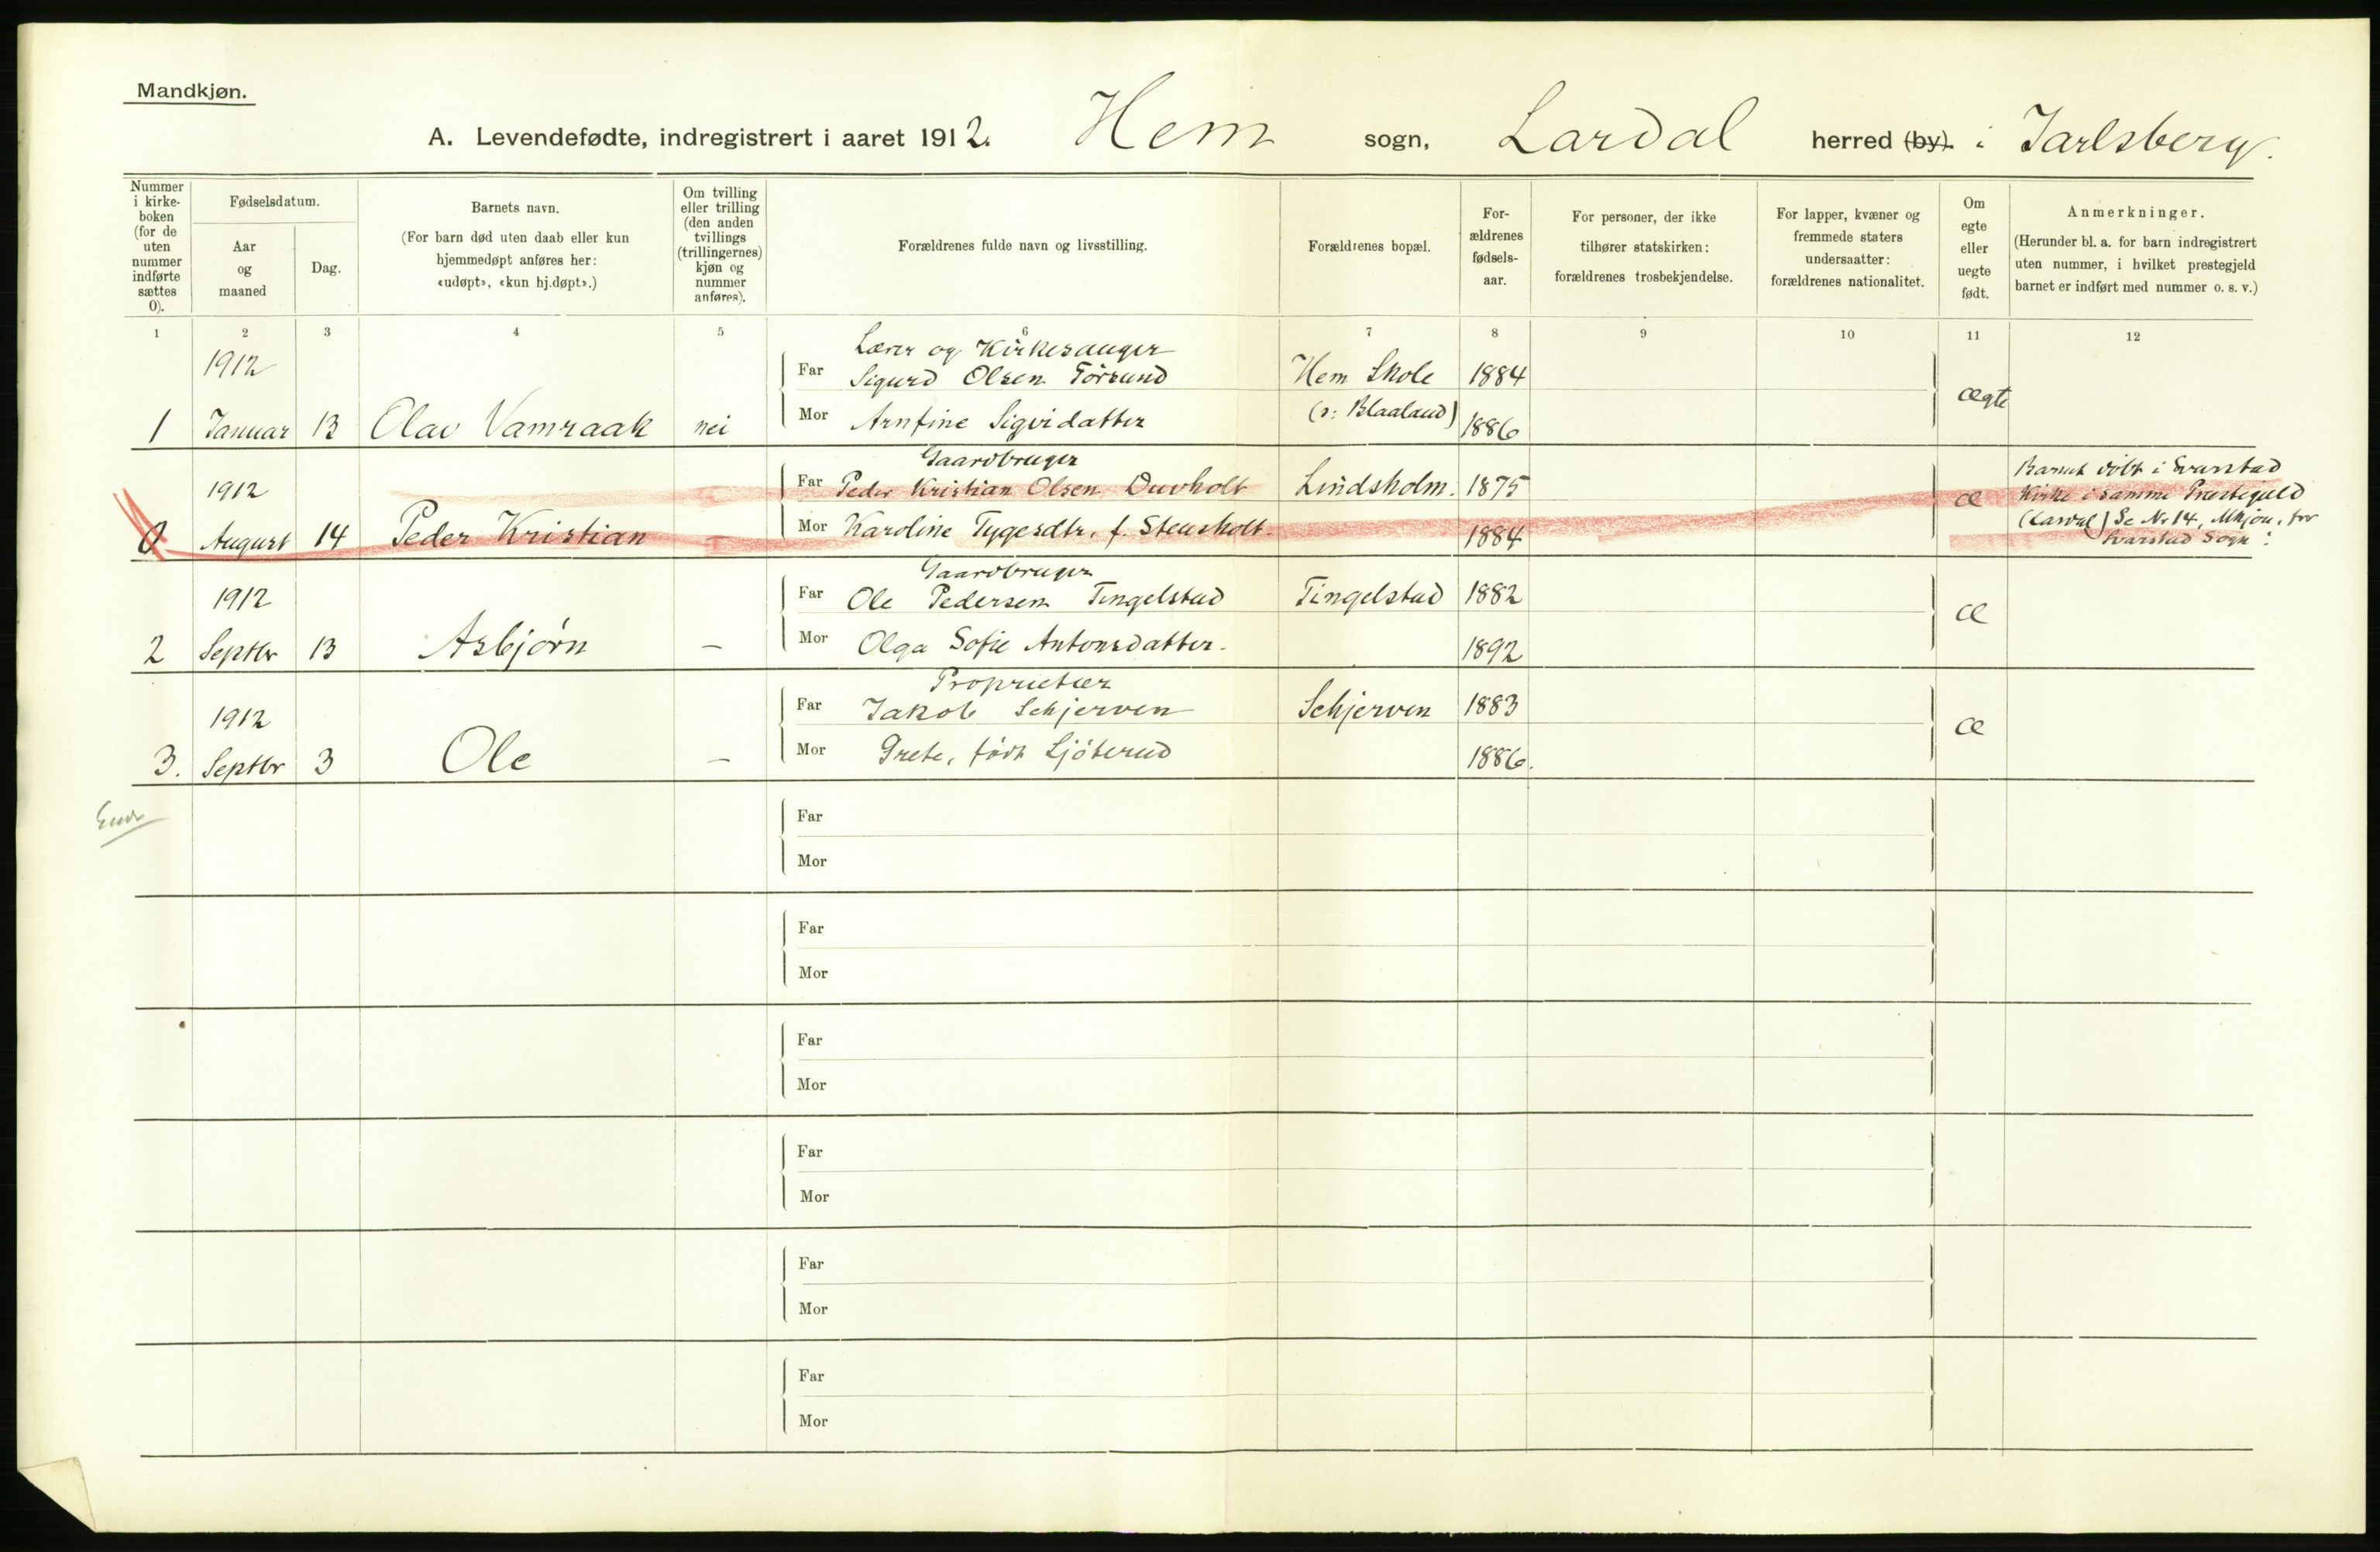 Mandkjøn.
A. Levendefødte, indregistrert i aaret 1912. Hem sogn, Lardal herred (by). i Jarlsberg.
Nummer i kirke-boken (for de uten nummer indførte sættes 0).
Fødselsdatum.
Aar og maaned
Dag.
Barnets navn.
(For barn død uten daab eller kun hjemmedøpt anføres her: «udøpt», «kun hj.døpt».)
Om tvilling eller trilling (den anden tvillings (trillingernes) kjøn og nummer anføres).
Forældrenes fulde navn og livsstilling.
Forældrenes bopæl.
For-ældrenes fødsels-aar.
For personer, der ikke tilhører statskirken: forældrenes trosbekjendelse.
For lapper, kvæner og fremmede staters undersaatter: forældrenes nationalitet.
Om egte eller uegte født.
Anmerkninger.
(Herunder bl. a. for barn indregistrert uten nummer, i hvilket prestegjeld barnet er indført med nummer o. s. v.)
1 2 3 4 5 6 7 8 9 10 11 12
Lærer og Kirkesanger
1912 Far Sigurd Olsen Törsund Hem Skole 1884 ægte
1 Januar 13 Olav Vamraak nei Mor Arnfine Sigvidatter (o: Blaaland) 1886
Gaardbruger
1912 Far Peder Kristian Olsen Duvholt Lindsholm. 1875 æ
0 August 14 Peder Kristian – Mor Karoline Tygesdtr. f. Stensholt. 1884
Barnet döbt i Svarstad
Kirke i samme Prestegjeld
(Lardal) Se No 14, Mkjön, for
Svarstad Sogn.
Gaardbruger
1912 Far Ole Pedersen Tingelstad Tingelstad 1882 æ
2 Septbr 13 Asbjørn – Mor Olga Sofie Antonsdatter. 1892
Proprietær
1912 Far Jakob Schjerven Schjerven 1883 æ
3. Septbr 3 Ole – Mor Grete, födt Sjöterud 1886.
Far
Mor
Far
Mor
Far
Mor
Far
Mor
Far
Mor
Far
Mor